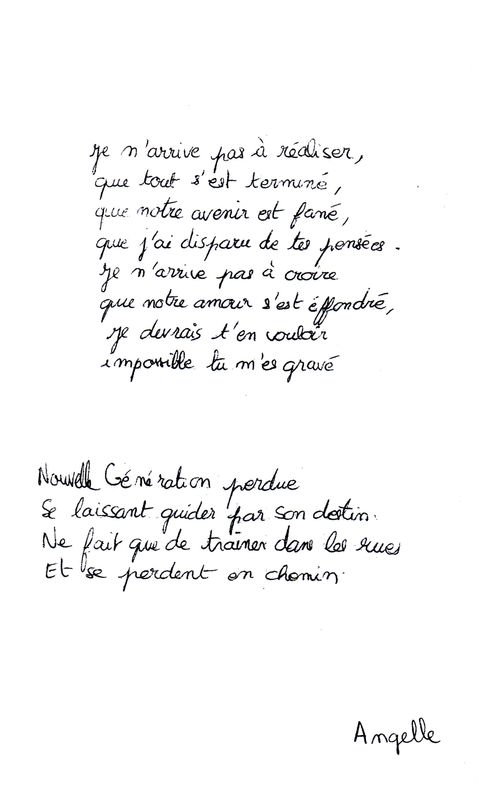 Je n'arrive pas à réaliser,
que tout s'est terminé,
que notre avenir est fané,
que j'ai disparu de tes pensées.
Je n'arrive pas à croire
que notre amour s'est éffondré,
je devrais t'en vouloir
impossible tu m'es gravé
Nouvelle Génération perdue
Se laissant guider par son destin.
Ne fait que de traîner dans les rues
Et se perdent en chemin.
Angelle